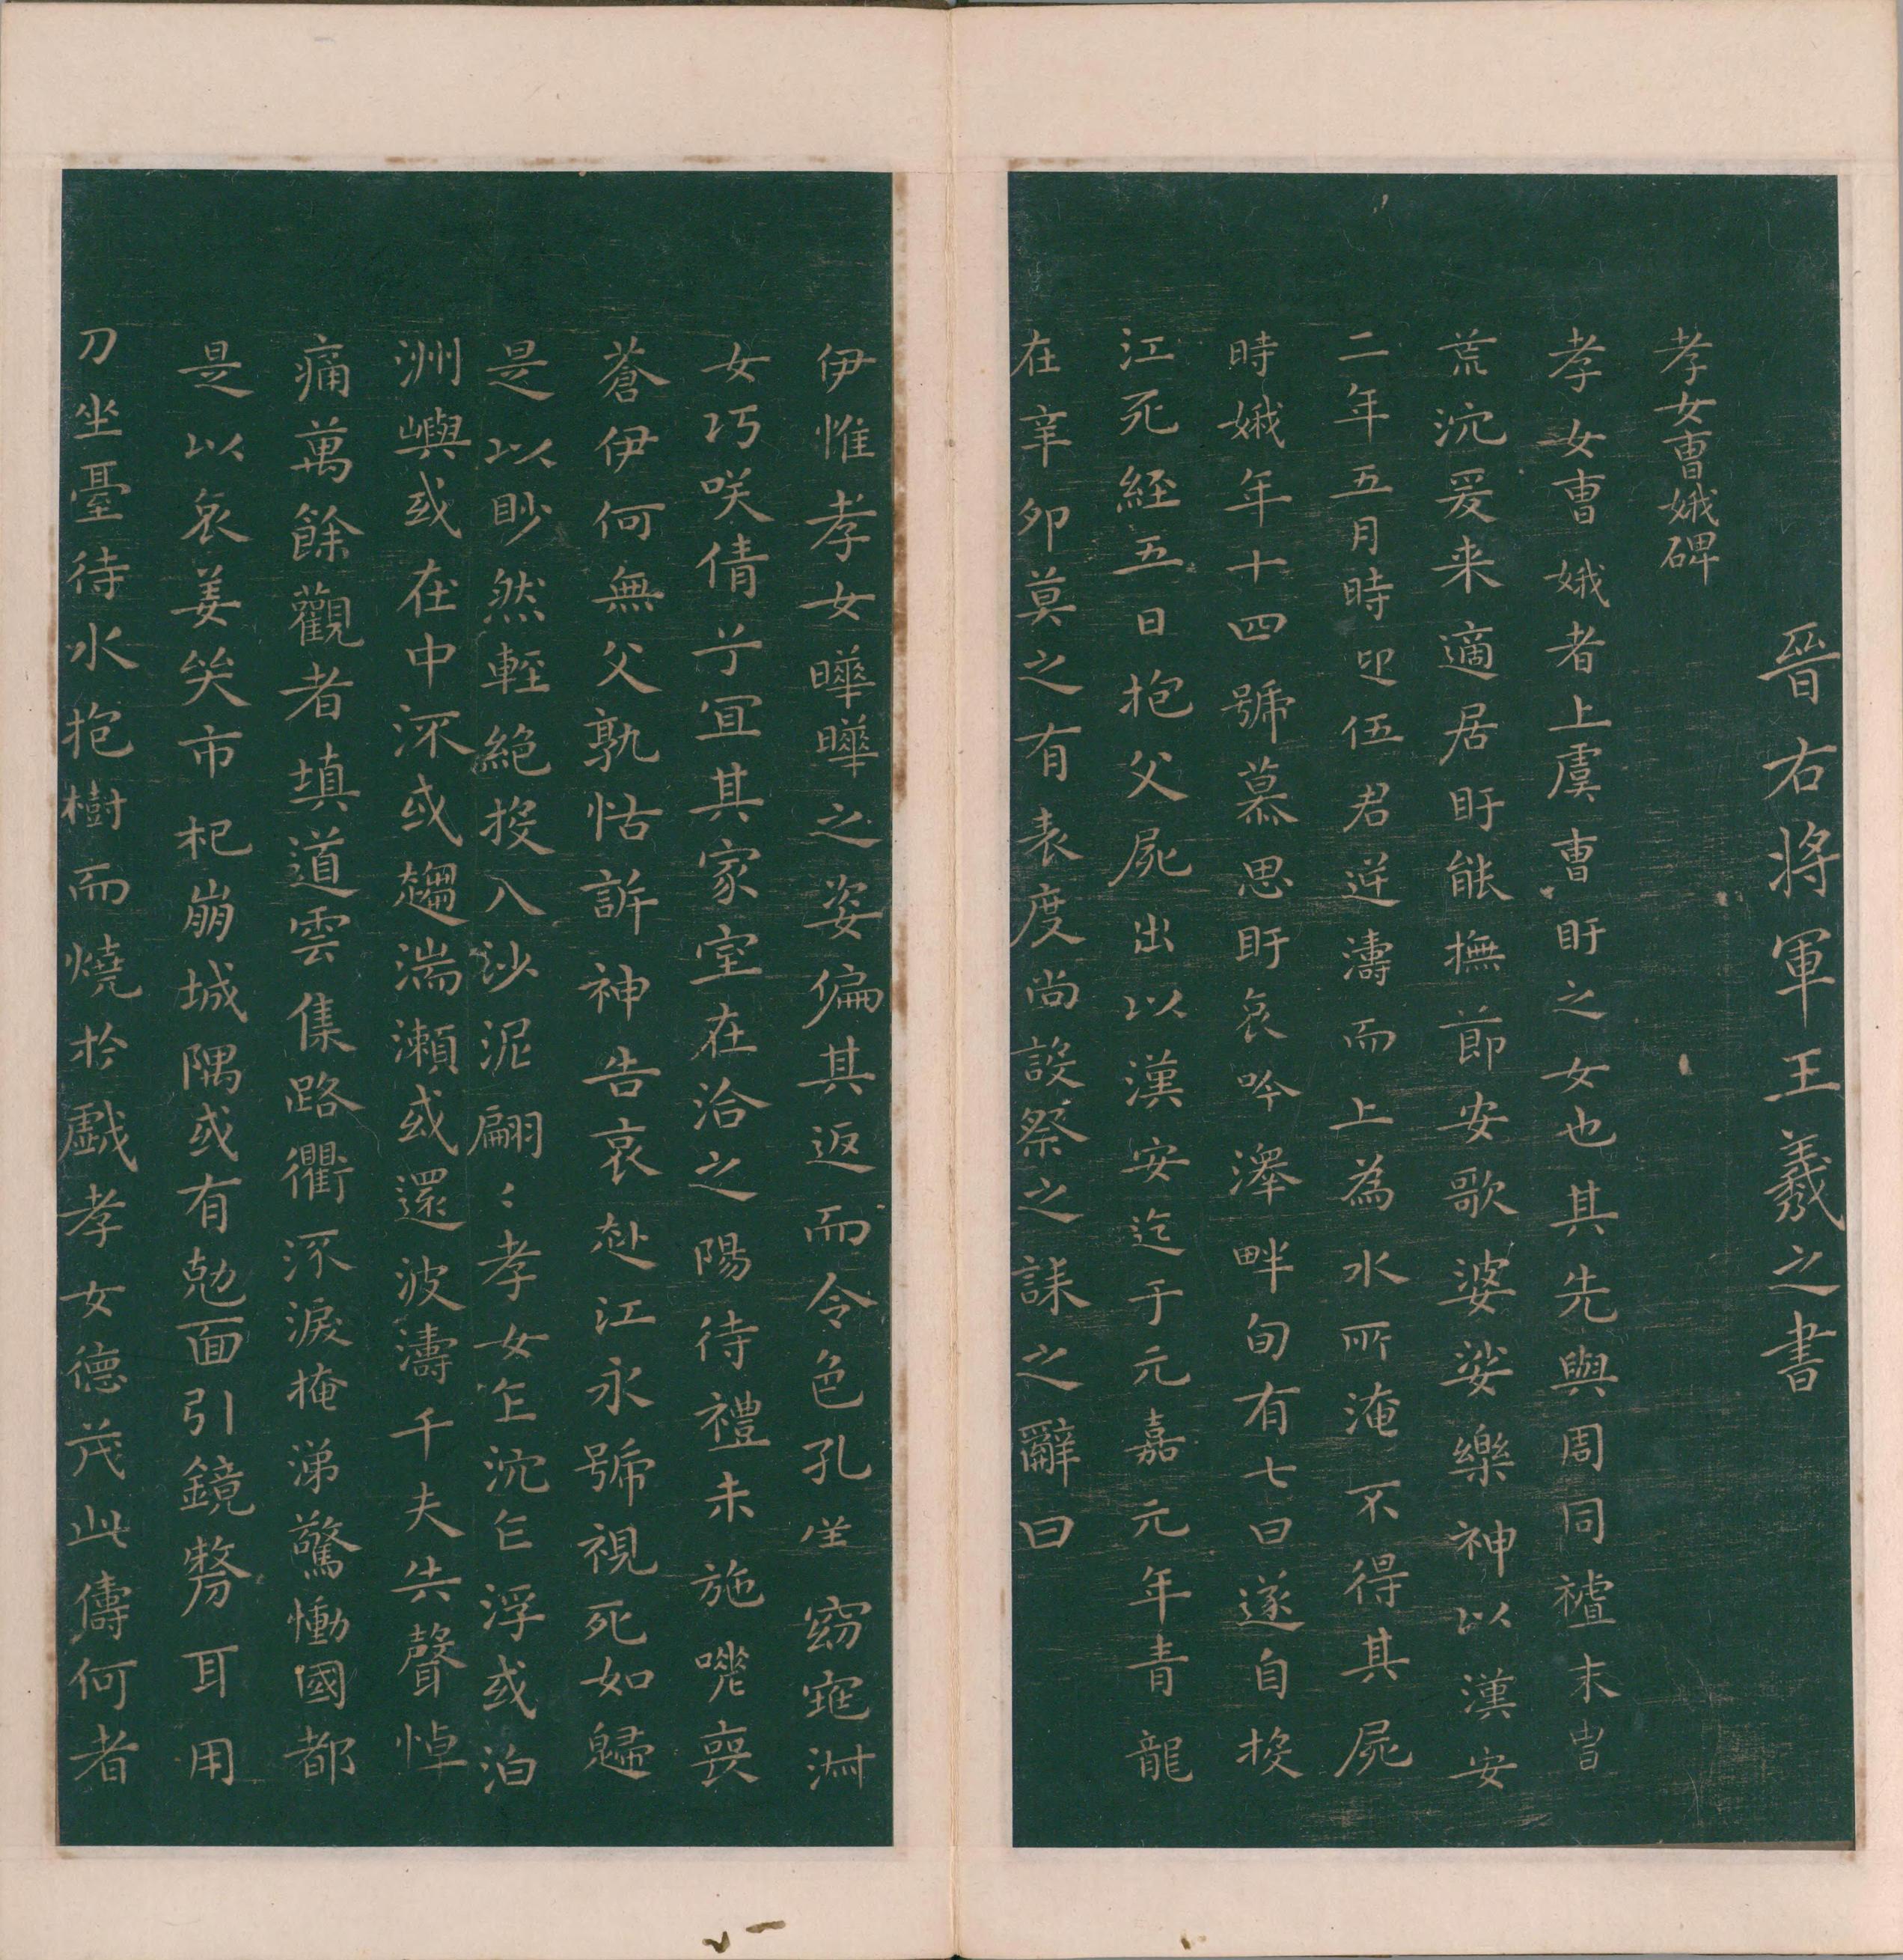 晉右將軍王羲之書
孝女曹娥碑
孝女曹娥者上虞曹盱之女也其先與周同禇末胄
荒沉爰来適居盱能撫節安歌婆娑樂神以漢安
二年五月時迎伍君逆濤而上為水所淹不得其屍
時娥年十四號慕思盱哀吟澤畔旬有七日遂自投
江死經五日抱父屍出以漢安迄于元嘉元年青龍
在辛卯莫之有表度尚設祭之誄之辭曰
伊惟孝女曄曄之姿偏其返而令色孔儀窈窕淑
女巧咲倩兮宜其家室在洽之陽待禮未施嗟喪
蒼伊何無父孰怙訴神告哀赴江永號視死如歸
是以眇然輕絕投入沙泥翩〻孝女乍沉乍浮或泊
洲嶼或在中流或趨湍瀨或還波濤千夫失聲悼
痛萬餘觀者填道雲集路衢流淚掩涕驚慟國都
是以哀姜哭市杞崩城隅或有剋面引鏡剺耳用
刀坐臺待水抱樹而燒於戲孝女德茂此儔何者